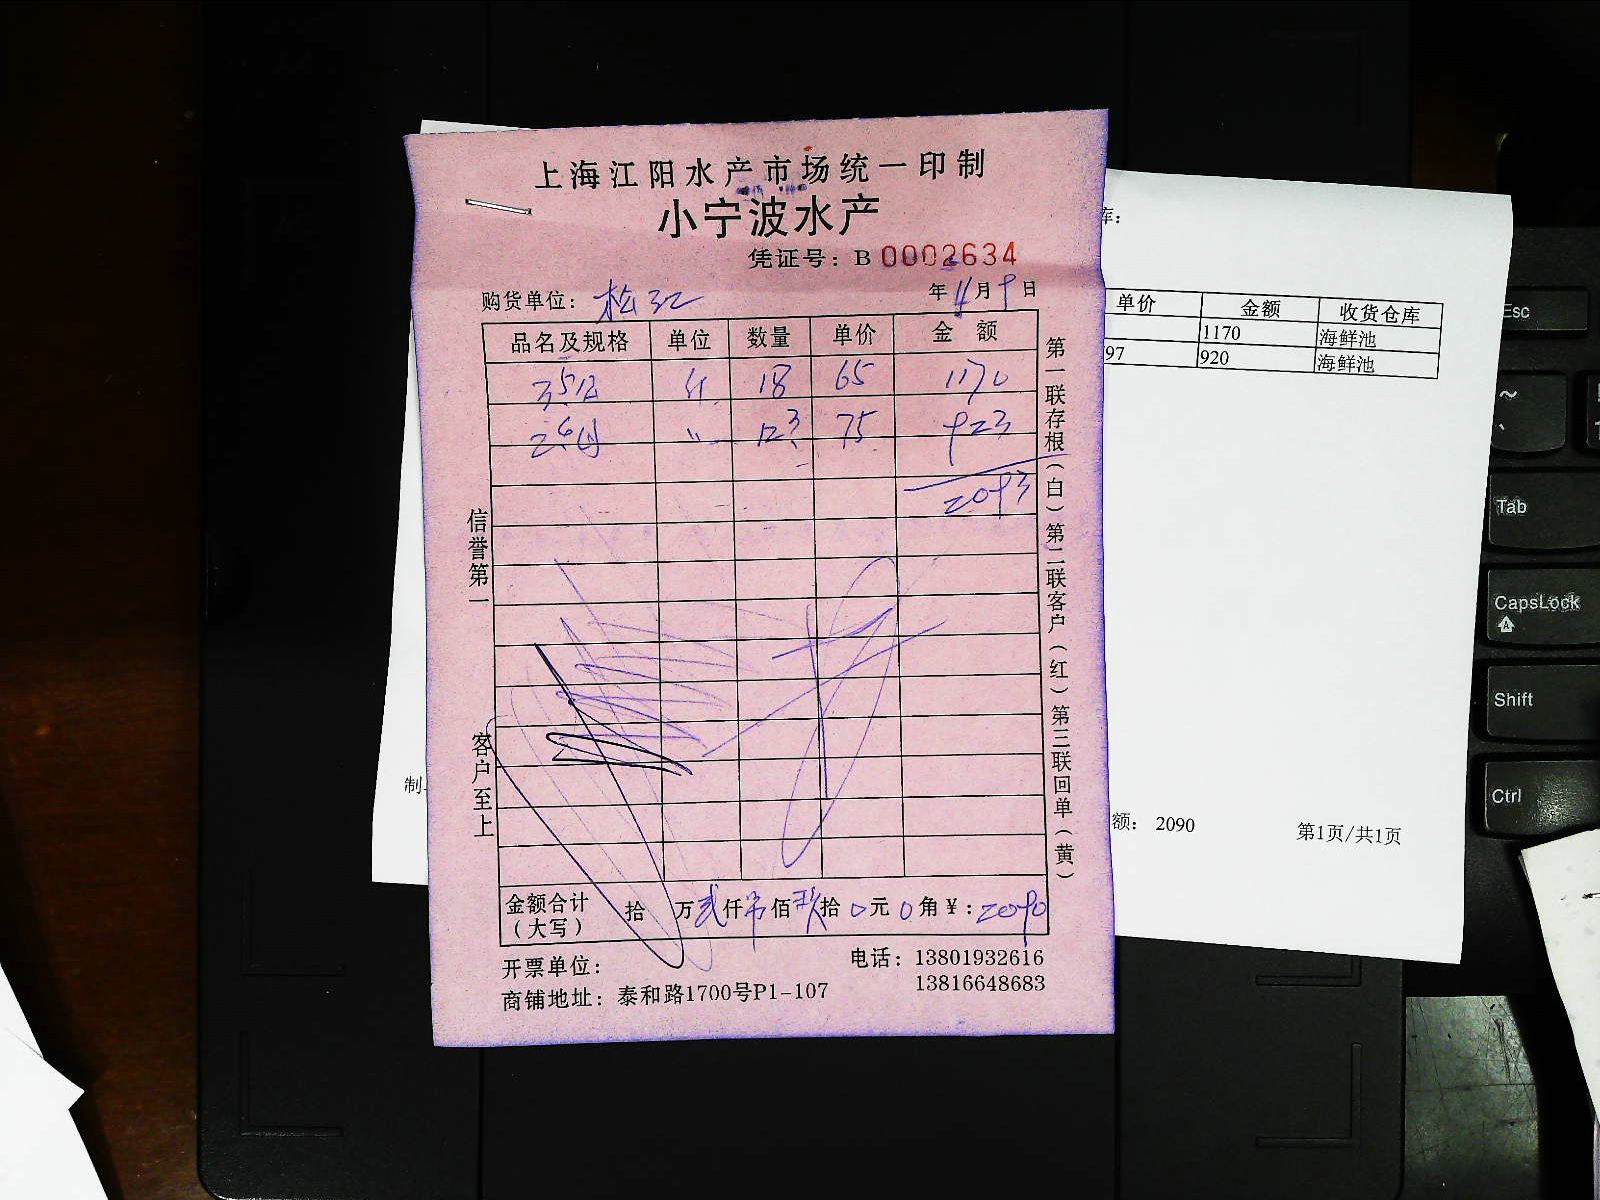 上海江阳水产市场统一印制
小宁波水产
凭证号：B 0002634
购货单位：松江 年 11月9日
品名及规格 单位 数量 单价 金 额
3.5公 斤 18 65 1170
2.6母 〃 12.3 75 923
2093
信誉第一
客户至上
第一联存根（白）第二联客户（红）第三联回单（黄）
金额合计（大写） 拾 万贰仟 佰玖拾0元0角￥：2090
开票单位：
电话：13801932616
13816648683
商铺地址：泰和路1700号P1-107
库：
单价 金额 收货仓库
1170 海鲜池
97 920 海鲜池
制
额： 2090 第1页/共1页
Esc
~
Tab
CapsLock
A
Shift
Ctrl